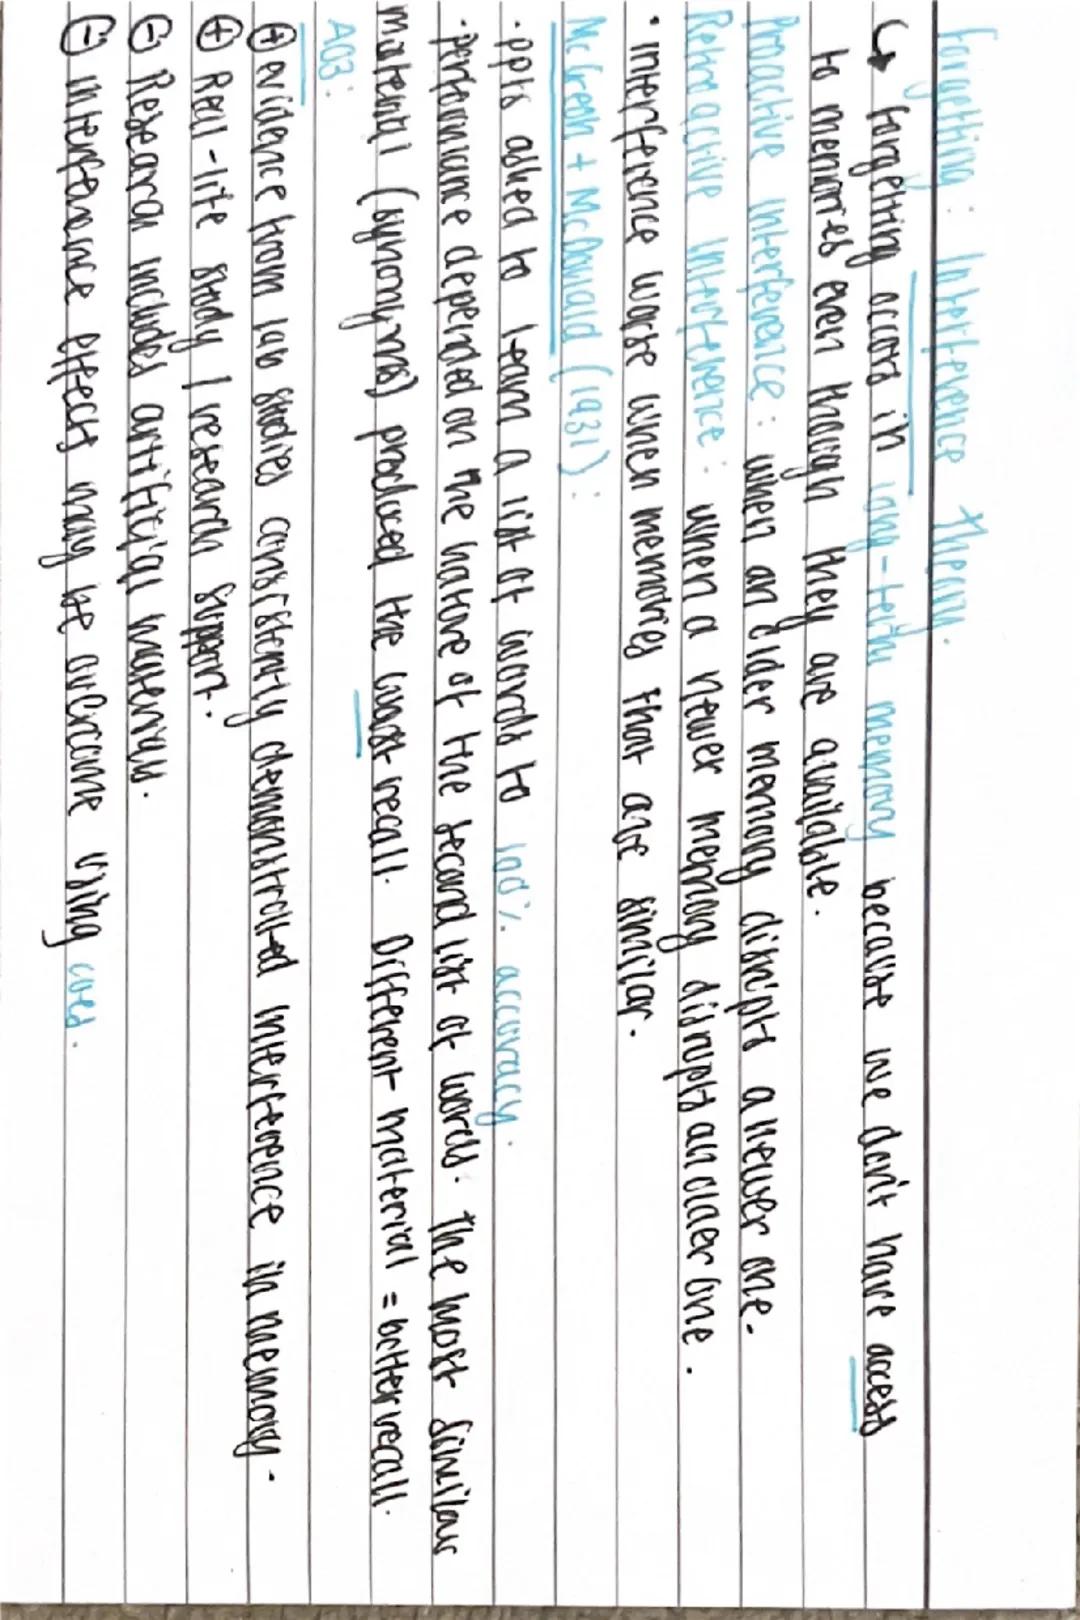 Forgetting: Interference Theory.
↳ forgetting occurs in long-term memory because we don't have access
to memories even though they are available.
Proactive interference: when an older memory disrupts a newer one.
Retroactive interference: when a newer memory disrupts an older one.
• interference worse when memories that are similar.
McGreoh + McDonald (1931):
• ppts asked to learn a list of words to 100% accuracy.
• performance depended on the nature of the second list of words. The most similar
material (synonyms) produced the worst recall. Different material = better recall.
A03:
⊕ evidence from lab studies consistently demonstrated interference in memory.
⊕ Real-life study / research support.
⊖ Research includes artificial materials.
⊖ interference effects may be overcome using cues.